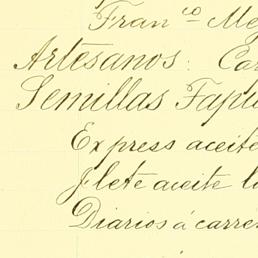 Fran.co Me
Artesanos: Car
Semillas Fapi
Express aceite
Flete aceite l
Diarios á carre